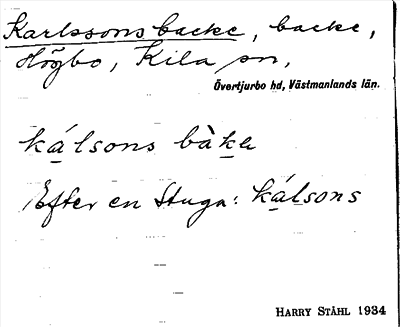 Karlssonsbacke, backe,
Högbo, Kila sn,
Övertjurbo hd, Västmanlands län.
kálsons bàkɐ
Efter en stuga: kálsons
HARRY STÅHL 1934